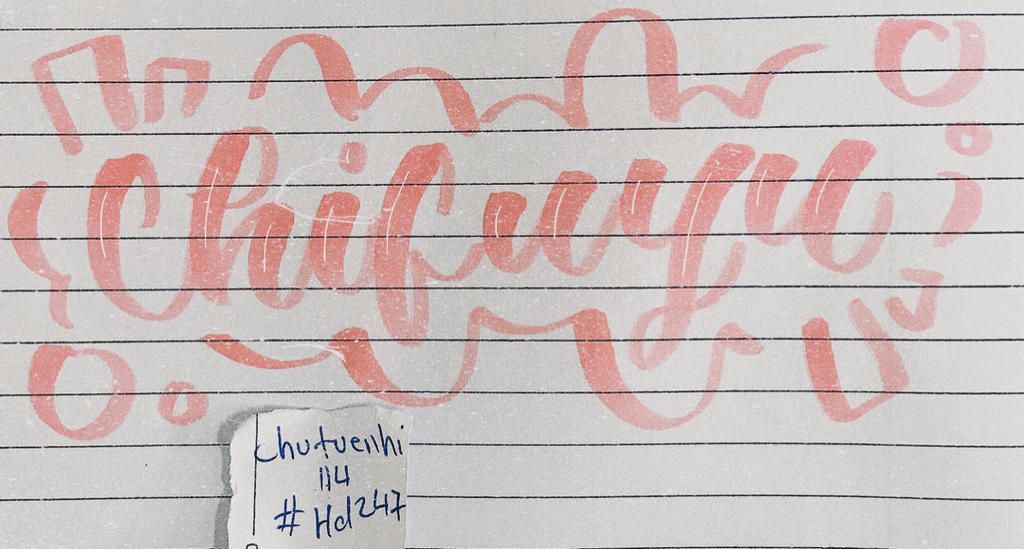 Chifuyu
chutuenhi
114
#Hd247